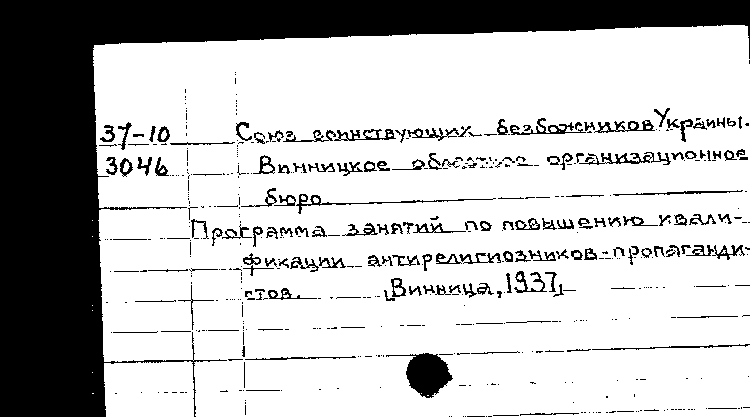 37-10 Союз воинствующих безбожников Украины.
3046 Винницкое областное организационное
бюро
Программа занятий по повышению квали-
фикации антирелигиозников-пропаганди-
стов. [Винница, 1937]